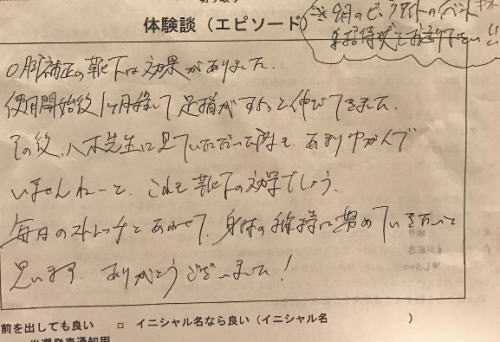 体験談(エピソード)
※9月のピラティスのイベント
招待状をお送り下さい!!
O脚補正の靴下は効果がありました。
使用開始後1ヶ月経して足指がすらっと伸びてきました。
その後、八木先生に見ていただいた時も、あまりゆがんで
いませんねーと、これも靴下の効果でしょう。
毎日のストレッチとあわせて、身体の維持に努めていきたいと
思います。ありがとうございました!
前を出しても良い □ イニシャル名なら良い(イニシャル名 )